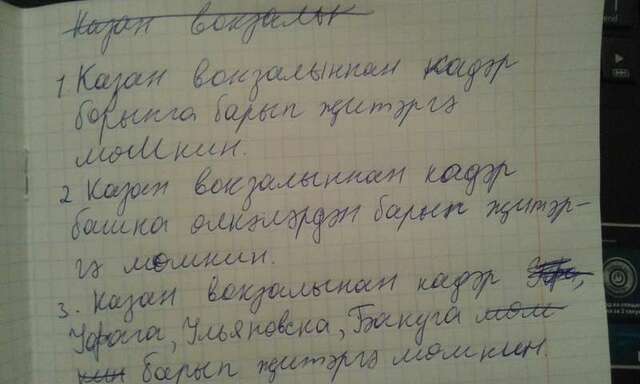 Казан вокзалын
1 Казан вокзалыннан кадәр
барынга барып җитәргә
момкин.
2 Казан вокзалыннан кадәр
башка өлкәләрдән барып җитәр-
гә момкин.
3. Казан вокзалынан кадәр
Уфага, Ульяновска, Бакуга мом
кин барып җитәргә момкин.